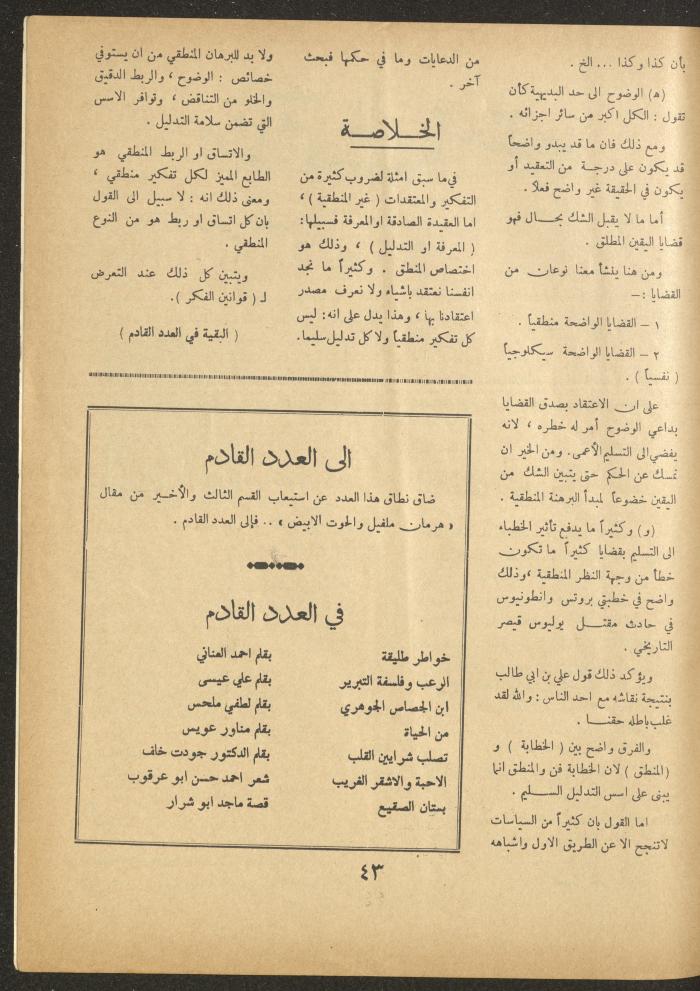 بأن كذا وكذا ... الخ .
(ه) الوضوح الى حد البديهية كأن
تقول : الكل اكبر من سائر اجزائه .
ومع ذلك فان ما قد يبدو واضحاً
قد يكون على درجة من التعقيد أو
يكون في الحقيقة غير واضح فعلاً .
أما ما لا يقبل الشك بحال فهو
قضايا اليقين المطلق .
ومن هنا ينشأ معنا نوعان من
القضايا :ــ
١ – القضايا الواضحة منطقياً .
٢ – القضايا الواضحة سيكلوجياً
( نفسياً ) .
على ان الاعتقاد بصدق القضايا
بداعي الوضوح أمر له خطره ، لانه
يفضي الى التسليم الأعمى . ومن الخير ان
نمسك عن الحكم حتى يتبين الشك من
اليقين خضوعاً لمبدأ البرهنة المنطقية .
(و) وكثيراً ما يدفع تأثير الخطباء
الى التسليم بقضايا كثيراً ما تكون
خطأ من وجهة النظر المنطقية ، وذلك
واضح في خطبتي بروتس وانطونيوس
في حادث مقتل يوليوس قيصر
التاريخي .
ويؤكد ذلك قول علي بن ابي طالب
بنتيجة نقاشه مع احد الناس : والله لقد
غلب باطله حقنا .
والفرق واضح بين ( الخطابة ) و
(المنطق ) لان الخطابة فن والمنطق انما
يبنى على اسس التدليل السليم .
اما القول بان كثيراً من السياسات
لا تنجح الا عن الطريق الاول واشباهه
من الدعايات وما في حكمها فبحث
آخر .
الخلاصة
في ما سبق امثلة لضروب كثيرة من
التفكير والمعتقدات ( غير المنطقية ) ،
اما العقيدة الصادقة او المعرفة فسبيلها :
( المعرفة او التدليل ) ، وذلك هو
اختصاص المنطق . وكثيراً ما نجد
انفسنا نعتقد باشياء ولا نعرف مصدر
اعتقادنا بها ، وهذا يدل على انه : ليس
كل تفكير منطقياً ولا كل تدليل سليما.
ولا بد للبرهان المنطقي من ان يستوفي
خصائص : الوضوح ، والربط الدقيق
والخلو من التناقض ، وتوافر الاسس
التي تضمن سلامة التدليل .
والاتساق او الربط المنطقي هو
الطابع المميز لكل تفكير منطقي ،
ومعنى ذلك انه : لا سبيل الى القول
بان كل اتساق او ربط هو من النوع
المنطقي .
ويتبين كل ذلك عند التعرض
لـ ( قوانين الفكر ) .
( البقية في العدد القادم )
الى العدد القادم
ضاق نطاق هذا العدد عن استيعاب القسم الثالث والأخير من مقال
« هرمان ملفيل والحوت الابيض » .. فإلى العدد القادم .
في العدد القادم
خواطر طليقة بقلم احمد العناني
الرعب وفلسفة التبرير بقلم علي عيسى
ابن الجصاص الجوهري بقلم لطفي ملحس
من الحياة بقلم مناور عويس
تصلب شرايين القلب بقلم الدكتور جودت خلف
الاحبة والاشقر الغريب شعر احمد حسن ابو عرقوب
بستان الصقيع قصة ماجد ابو شرار
٤٣